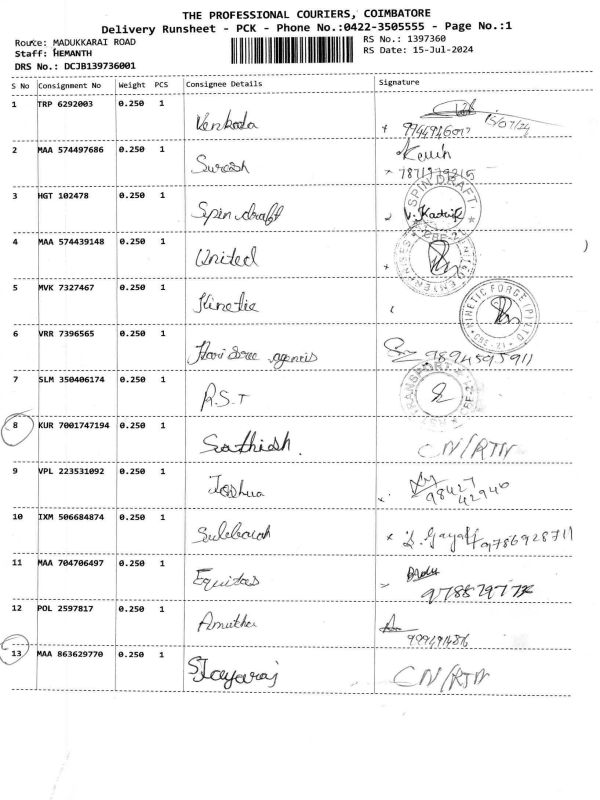 THE PROFESSIONAL COURIERS, COIMBATORE
Delivery Runsheet - PCK - Phone No.:0422-3505555 - Page No.:1
Route: MADUKKARAI ROAD
RS No.: 1397360
Staff: HEMANTH
RS Date: 15-Jul-2024
DRS No.: DCJB139736001
S No Consignment No Weight PCS Consignee Details Signature
1 TRP 6292003 0.250 1 Venkada
15/07/24
2 MAA 574497686 0.250 1 Suresh Kevin
3 HGT 102478 0.250 1 Spin draft
SPIN DRAFT
4 MAA 574439148 0.250 1 United
5 MVK 7327467 0.250 1 Kinetic
KINETIC FORCE (P) LTD
CBE-21
6 VRR 7396565 0.250 1 Hari Sree agencis 9894595911
7 SLM 350406174 0.250 1 R.S.T
TRANSPORT
8 KUR 7001747194 0.250 1 Sathish. CN/RTN
9 VPL 223531092 0.250 1 Joshua
98427
42940
10 IXM 506684874 0.250 1 9786928711
11 MAA 704706497 0.250 1 Equitas
12 POL 2597817 0.250 1 Amutha
13 MAA 863629770 0.250 1 S Jayaraj CN/RTN